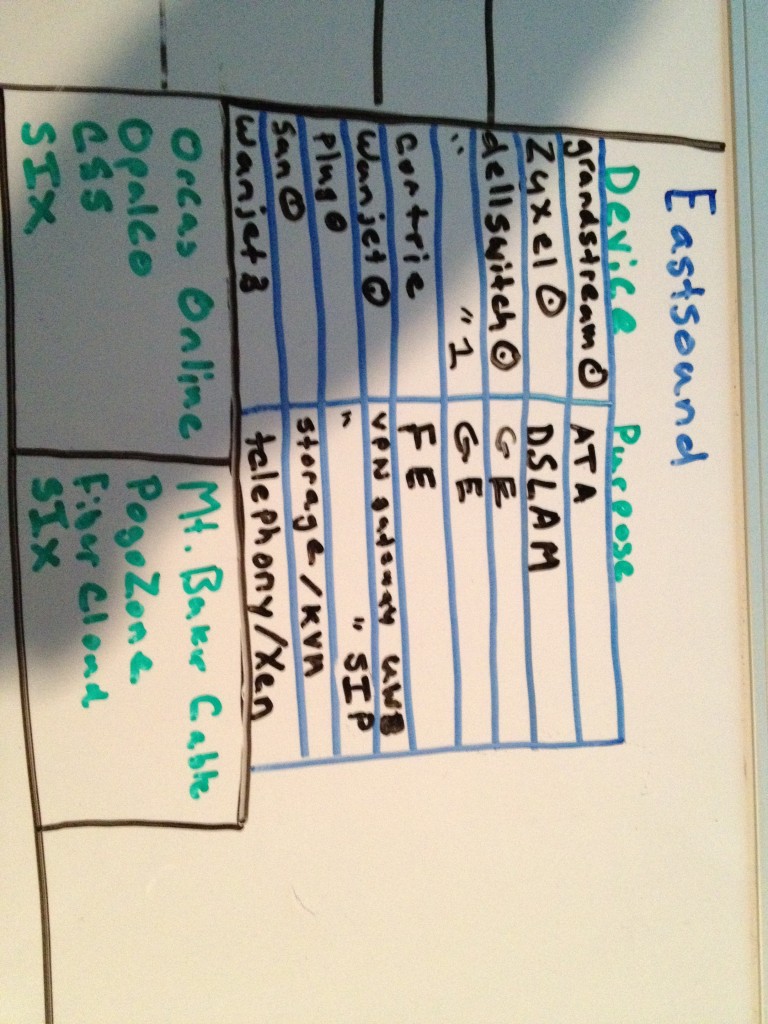 Eastsound
Device Purpose
grandstream0 ATA
Zyxel0 DSLAM
dellswitch0 GE
" "1 GE
contrie FE
wanjet0 VPN gateway UWB
plug0 " " SIP
san0 storage/KVM
wanjet3 telephony/Xen
Orcas Online Mt. Baker Cable
Opalco PogoZone
CSS Fiber Cloud
SIX SIX